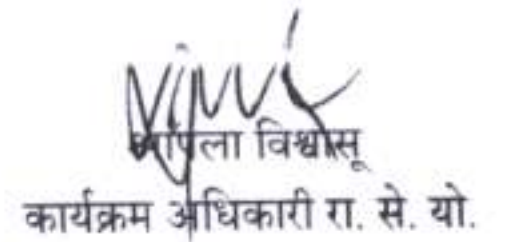 आपला विश्वासू
कार्यक्रम अधिकारी रा. से. यो.